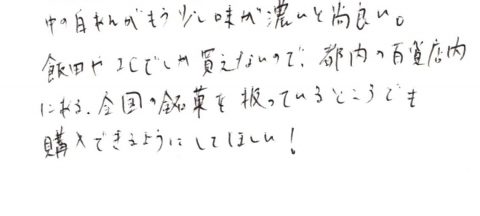 中の白あんがもう少し味が濃いと尚良い。
飯田やICでしか買えないので、都内の百貨店内
にある、全国の銘菓を扱っているところでも
購入できるようにしてほしい！